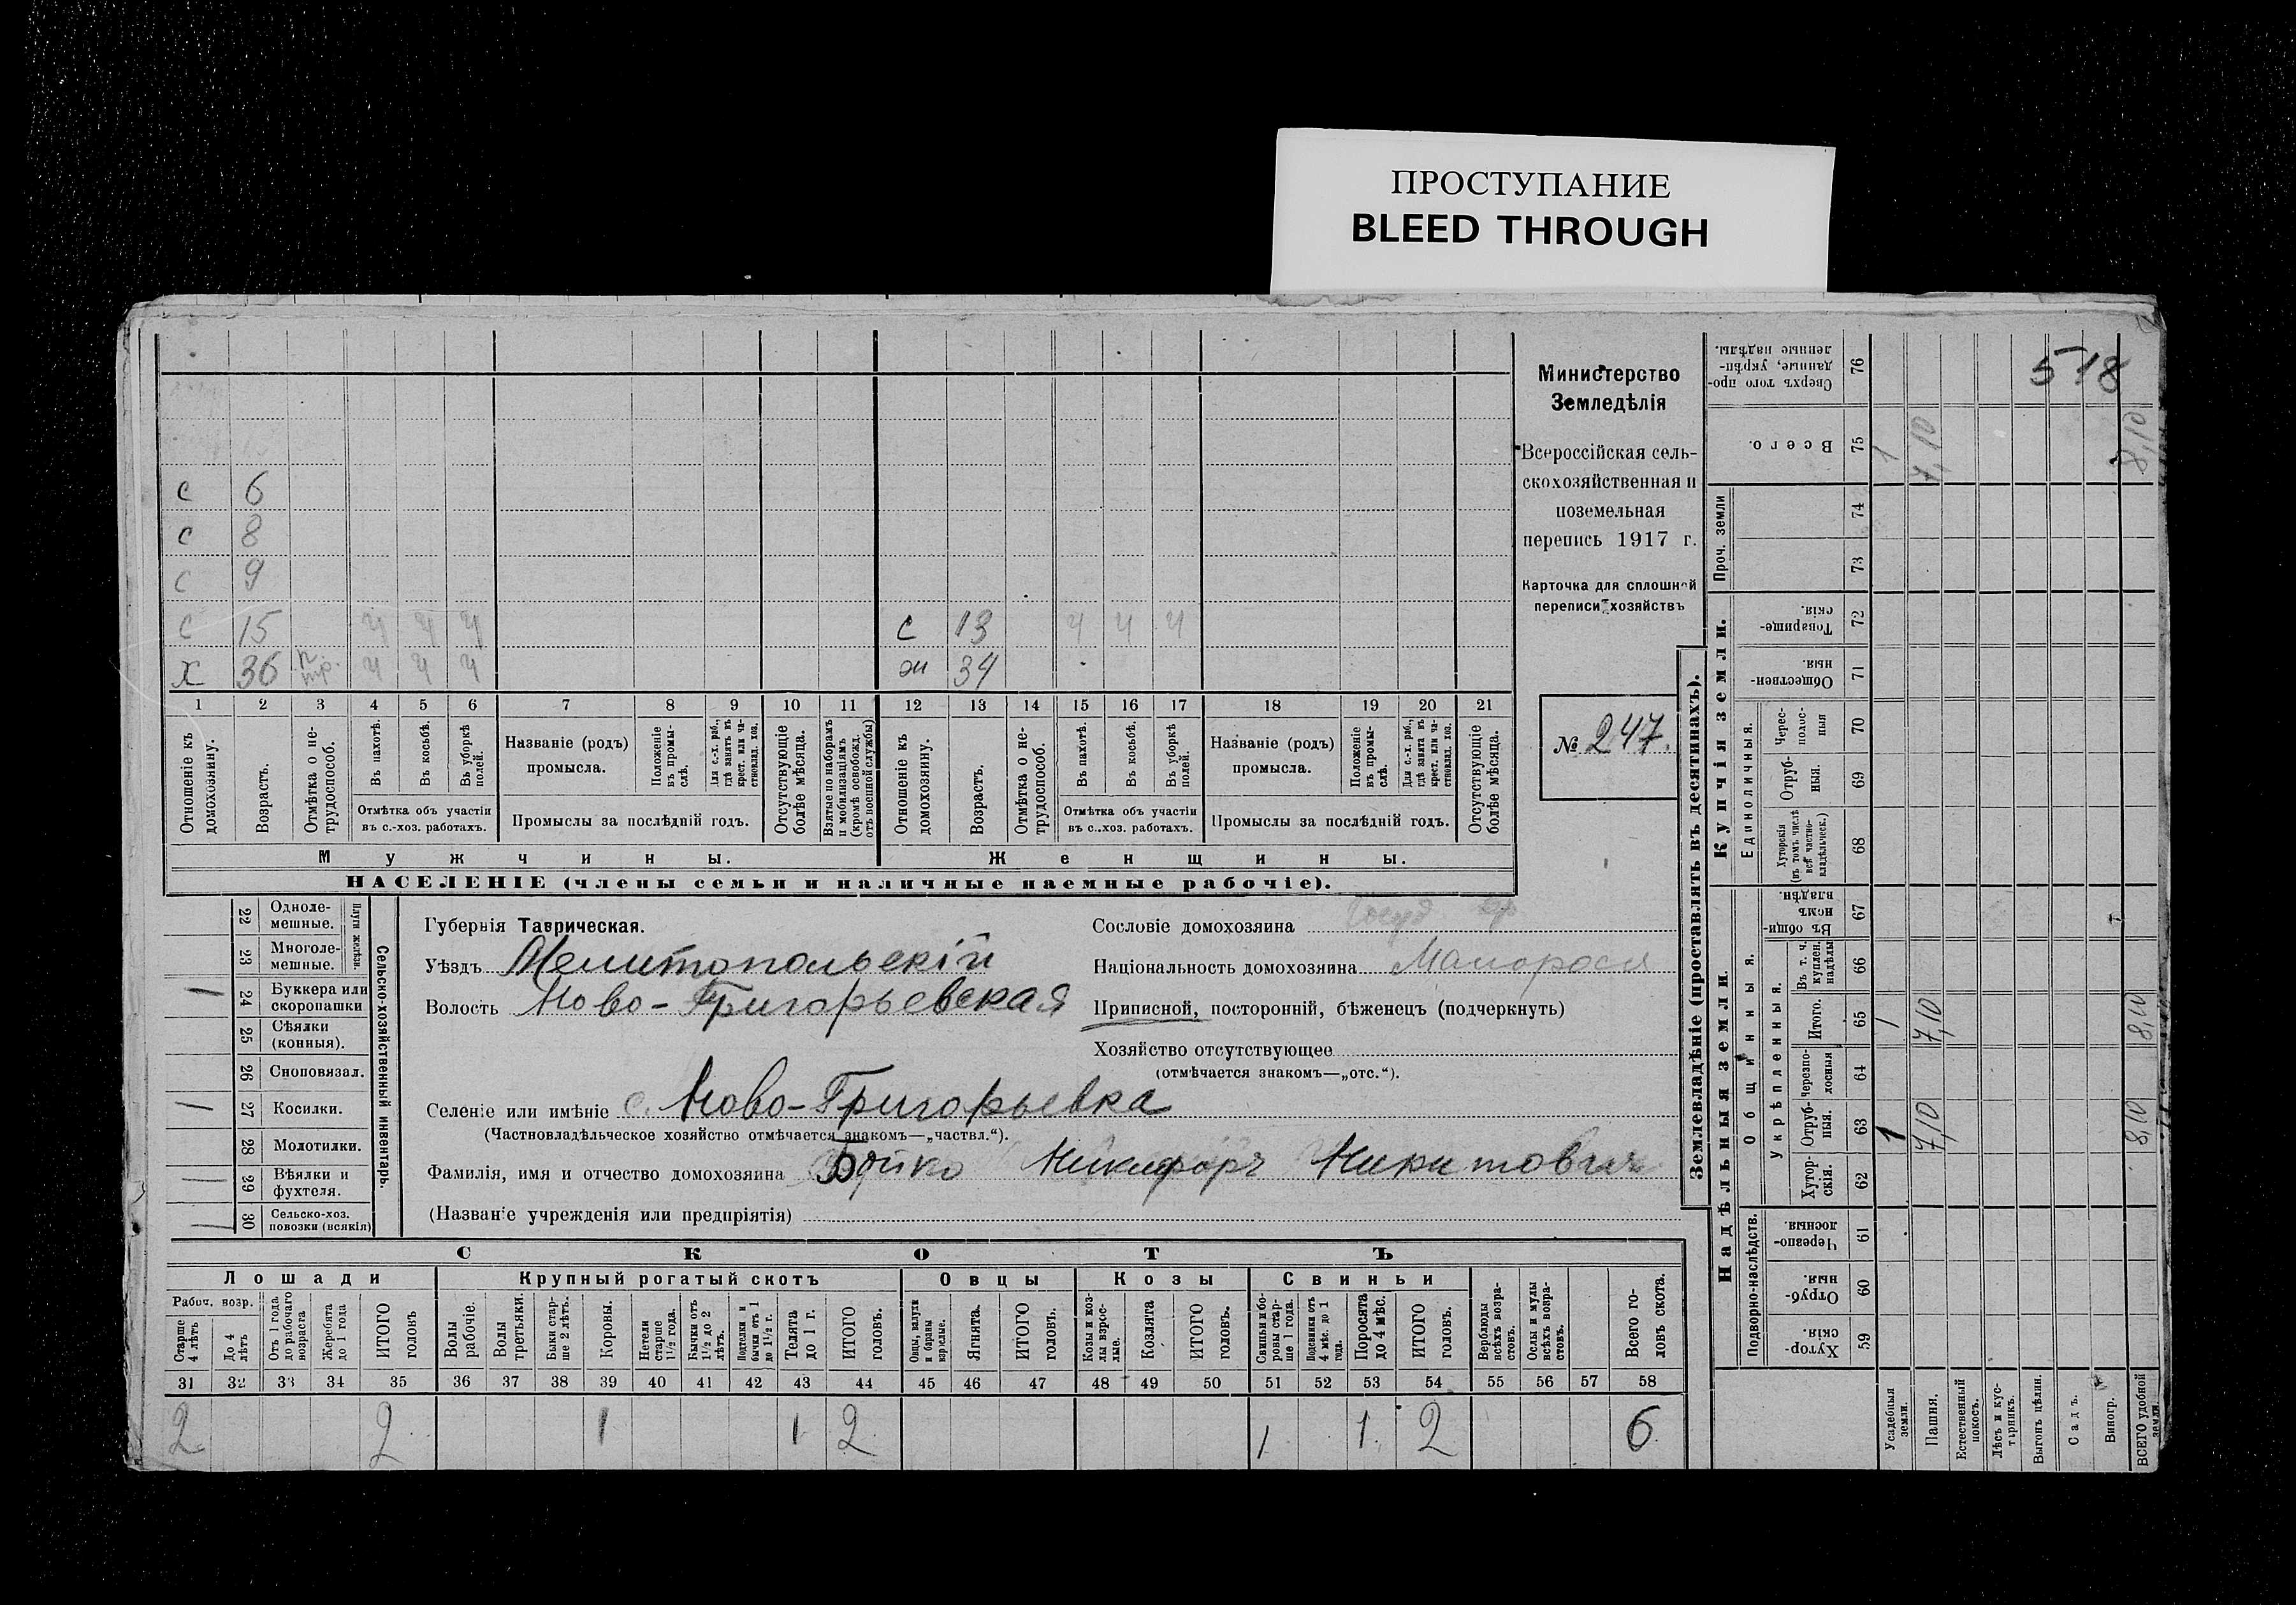 ПРОСТУПАНИЕ
BLEED THROUGH
518
Министерство
Земледѣлія
Всероссійская сель-
скохозяйственная и
поземельная
перепись 1917 г.
Карточка для сплошной
переписи хозяйствъ
№ 247.
с 6
с 8
с 9
с 15 ч ч ч с 13 ч ч ч
х 36 ч ч ч ж 34
1 2 3 4 5 6 7 8 9 10 11 12 13 14 15 16 17 18 19 20 21
Отношеніе къ домохозяину.
Возрастъ.
Отмѣтка о не-трудоспособ.
Въ пахотѣ.
Въ косьбѣ.
Въ уборкѣ полей.
Названіе (родъ) промысла.
Положеніе въ промы-слѣ.
Для с.-х. раб., гдѣ занятъ въ крест. или ча-ствовлад. хоз.
Отсутствующіе болѣе мѣсяца.
Взятые по наборамъ и мобилизаціямъ (кромѣ освобожд. отъ военной службы)
Отношеніе къ домохозяину.
Возрастъ.
Отмѣтка о не-трудоспособ.
Въ пахотѣ.
Въ косьбѣ.
Въ уборкѣ полей.
Названіе (родъ) промысла.
Положеніе въ промы-слѣ.
Для с.-х. раб., гдѣ занята въ крест. или ча-ствовлад. хоз.
Отсутствующіе болѣе мѣсяца.
Отмѣтка объ участіи въ с.-хоз. работахъ.
Промыслы за послѣдній годъ.
Отмѣтка объ участіи въ с..хоз. работахъ.
Промыслы за послѣдній годъ.
Мужчины.
Женщины.
НАСЕЛЕНІЕ (члены семьи и наличные наемные рабочіе).
Сельско-хозяйственный инвентарь.
Плуги желѣзн.
22 Одноле-мешные.
23 Многоле-мешные.
24 Буккера или скоропашки
25 Сѣялки (конныя).
26 Сноповязал.
27 Косилки.
28 Молотилки.
29 Вѣялки и фухтеля.
30 Сельско-хоз. повозки (всякія)
Губернія Таврическая.
Уѣздъ Мелитопольскій
Волость Ново-Григорьевская
Сословіе домохозяина
Національность домохозяина Малоросс
Приписной, посторонній, бѣженецъ (подчеркнуть)
Хозяйство отсутствующее
(отмѣчается знакомъ—„отс.“).
Селеніе или имѣніе с. Ново-Григорьевка
(Частновладѣльческое хозяйство отмѣчается знакомъ—„частвл.“).
Фамилія, имя и отчество домохозяина Бойко Никифоръ Никитовичъ
(Названіе учрежденія или предпріятія)
СКОТЪ
Лошади Крупный рогатый скотъ Овцы Козы Свиньи
Рабоч. возр.
Старше 4 лѣтъ
До 4 лѣтъ
Отъ 1 года до рабочаго возраста
Жеребята до 1 года
ИТОГО головъ
Волы рабочіе.
Волы третьяки.
Быки стар-ше 2 лѣтъ.
Коровы.
Нетели старше 1½ года.
Бычки отъ 1½ до 2 лѣтъ.
Подтелки и бычки отъ 1 до 1½ г.
Телята до 1 г.
ИТОГО головъ.
Овцы, валухи и бараны взрослые.
Ягнята.
ИТОГО головъ.
Козы и коз-лы взрос-лые.
Козлята
ИТОГО головъ.
Свиньи и бо-ровы стар-ше 1 года.
Подсвинки отъ 4 мѣс. до 1 года.
Поросята до 4 мѣс.
ИТОГО головъ.
Верблюды всѣхъ возра-стовъ.
Ослы и мулы всѣхъ возра-стовъ.
Всего го-ловъ скота.
31 32 33 34 35 36 37 38 39 40 41 42 43 44 45 46 47 48 49 50 51 52 53 54 55 56 57 58
2 2 1 1 2 1 1 2 6
Землевладѣніе (проставлять въ десятинахъ).
Надѣльныя земли.
Купчія земли.
Проч. земли
Подворно-наслѣдств.
Общинныя.
Укрѣпленныя.
Единоличныя.
Хутор-скія. 59
Отруб-ныя. 60
Черезпо-лосныя 61
Хутор-скія. 62
Отруб-ныя. 63 1 7,10 8,10
Черезпо-лосныя 64
Итого. 65 1 7,10 8,10
Въ т. ч. куплен. надѣлы 66
Въ общи-номъ владѣн. 67
Хуторскія (въ томъ числѣ всѣ частно-владѣльческ.) 68
Отруб-ныя. 69
Черес-полос-ныя 70
Обществен-ныя. 71
Товарище-скія. 72
73
74
Всего. 75 1 7,10 8,10
Сверхъ того про-данные, укрѣп-ленные надѣлы. 76
Усадебныя земли.
Пашня.
Естественный покосъ.
Лѣсъ и кус-тарникъ.
Выгонъ цѣлин.
Садъ.
Виногр.
ВСЕГО удобной земли.